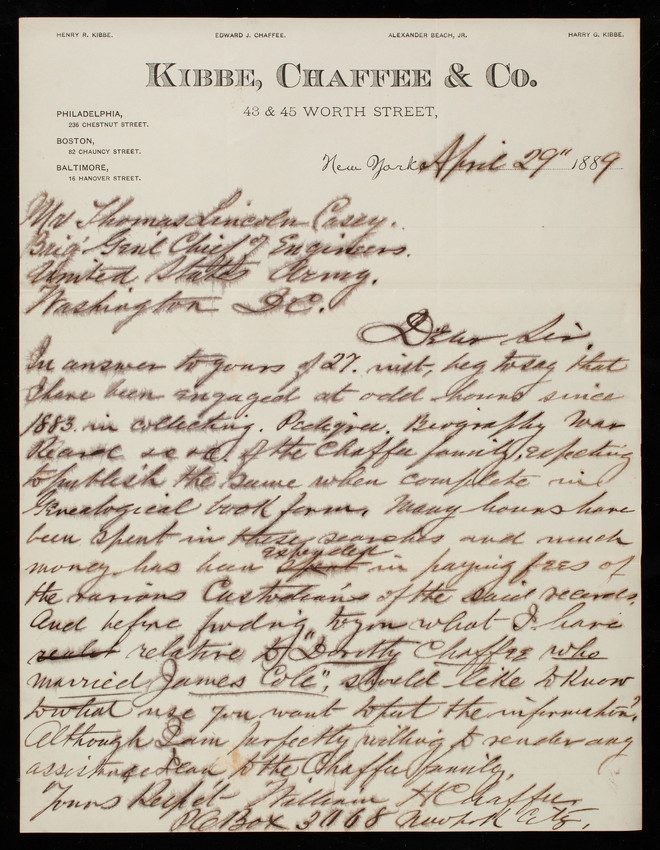 HENRY R. KIBBE. EDWARD J. CHAFFEE. ALEXANDER BEACH, JR. HARRY G. KIBBE.
KIBBE, CHAFFEE & CO.
43 & 45 WORTH STREET,
PHILADELPHIA,
236 CHESTNUT STREET.
BOSTON,
82 CHAUNCY STREET.
BALTIMORE,
16 HANOVER STREET.
New York, April 29" 1889
Mr Thomas Lincoln Casey.
Brig' Genl Chief of Engineers.
United States Army.
Washington D.C.
Dear Sir,
In answer to yours of 27. inst, beg to say that
I have been engaged at odd hours since
1883. in collecting. Pedigree. Biography War
&c. of the Chaffee family, expecting
to publish the same when complete in
Genealogical book form. Many hours have
been spent in these searches and much
money has been spent expended in paying fees of
the various Custodians of the said records.
And before you what I have
relative to "Dorothy Chaffee who
married James Cole", should like to know
to what use you want to put the information?,
Although I am perfectly willing to render any
assistance I can to the Chaffee family.
Yours Resp't William H Chaffee.
P.O Box 3068 New York City.